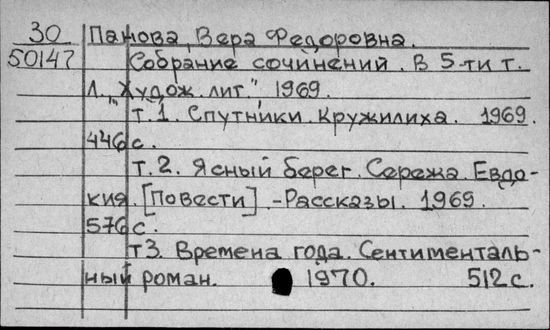 30 Панова, Вера Федоровна.
50147 Собрание сочинений. В 5-ти т.
Л. „Худож. лит." 1969.
т.1. Спутники. Кружилиха. 1969.
446 с.
т.2. Ясный берег. Сережа. Евдо-
кия. [Повести] -Рассказы. 1969.
576 с.
т3. Времена года. Сентименталь-
ный роман. 1970. 512 с.